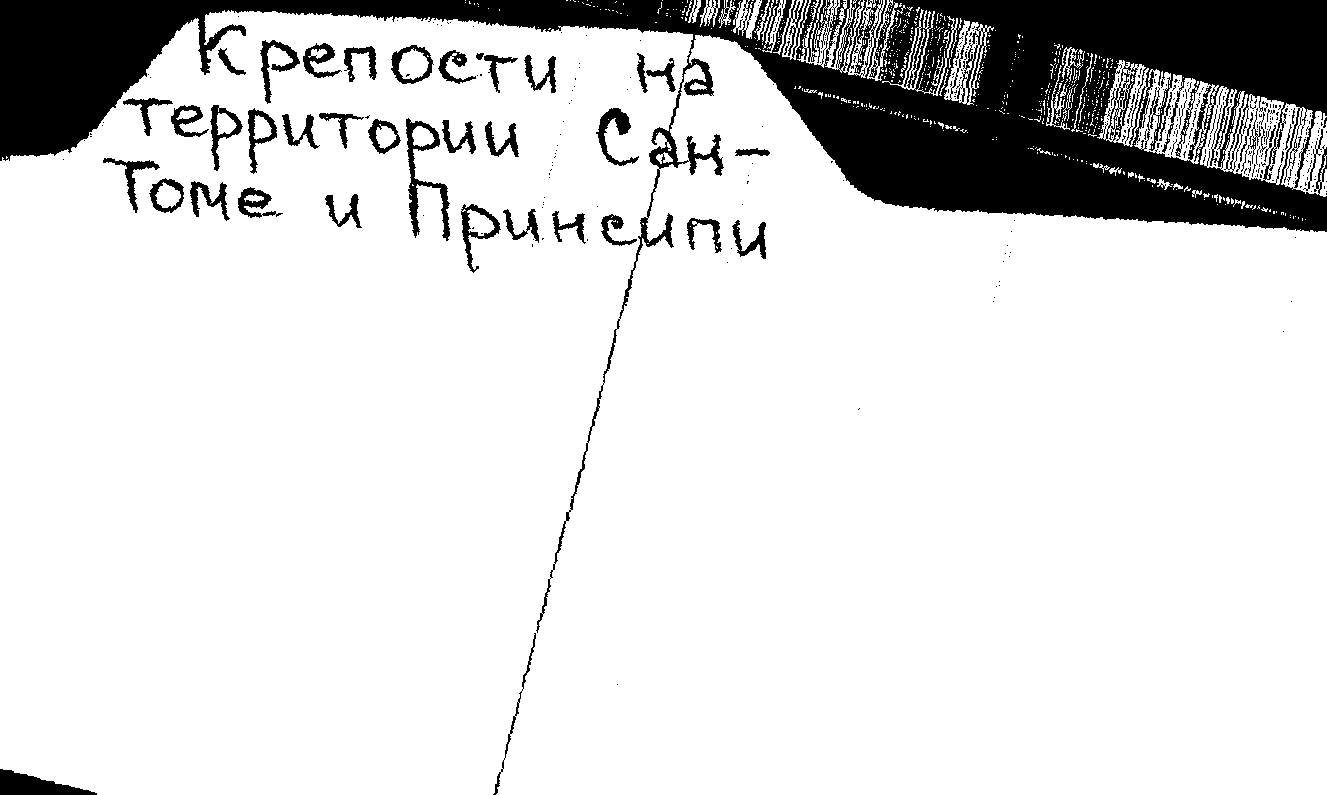 Крепости на
территории Сан-
Томе и Принсипи